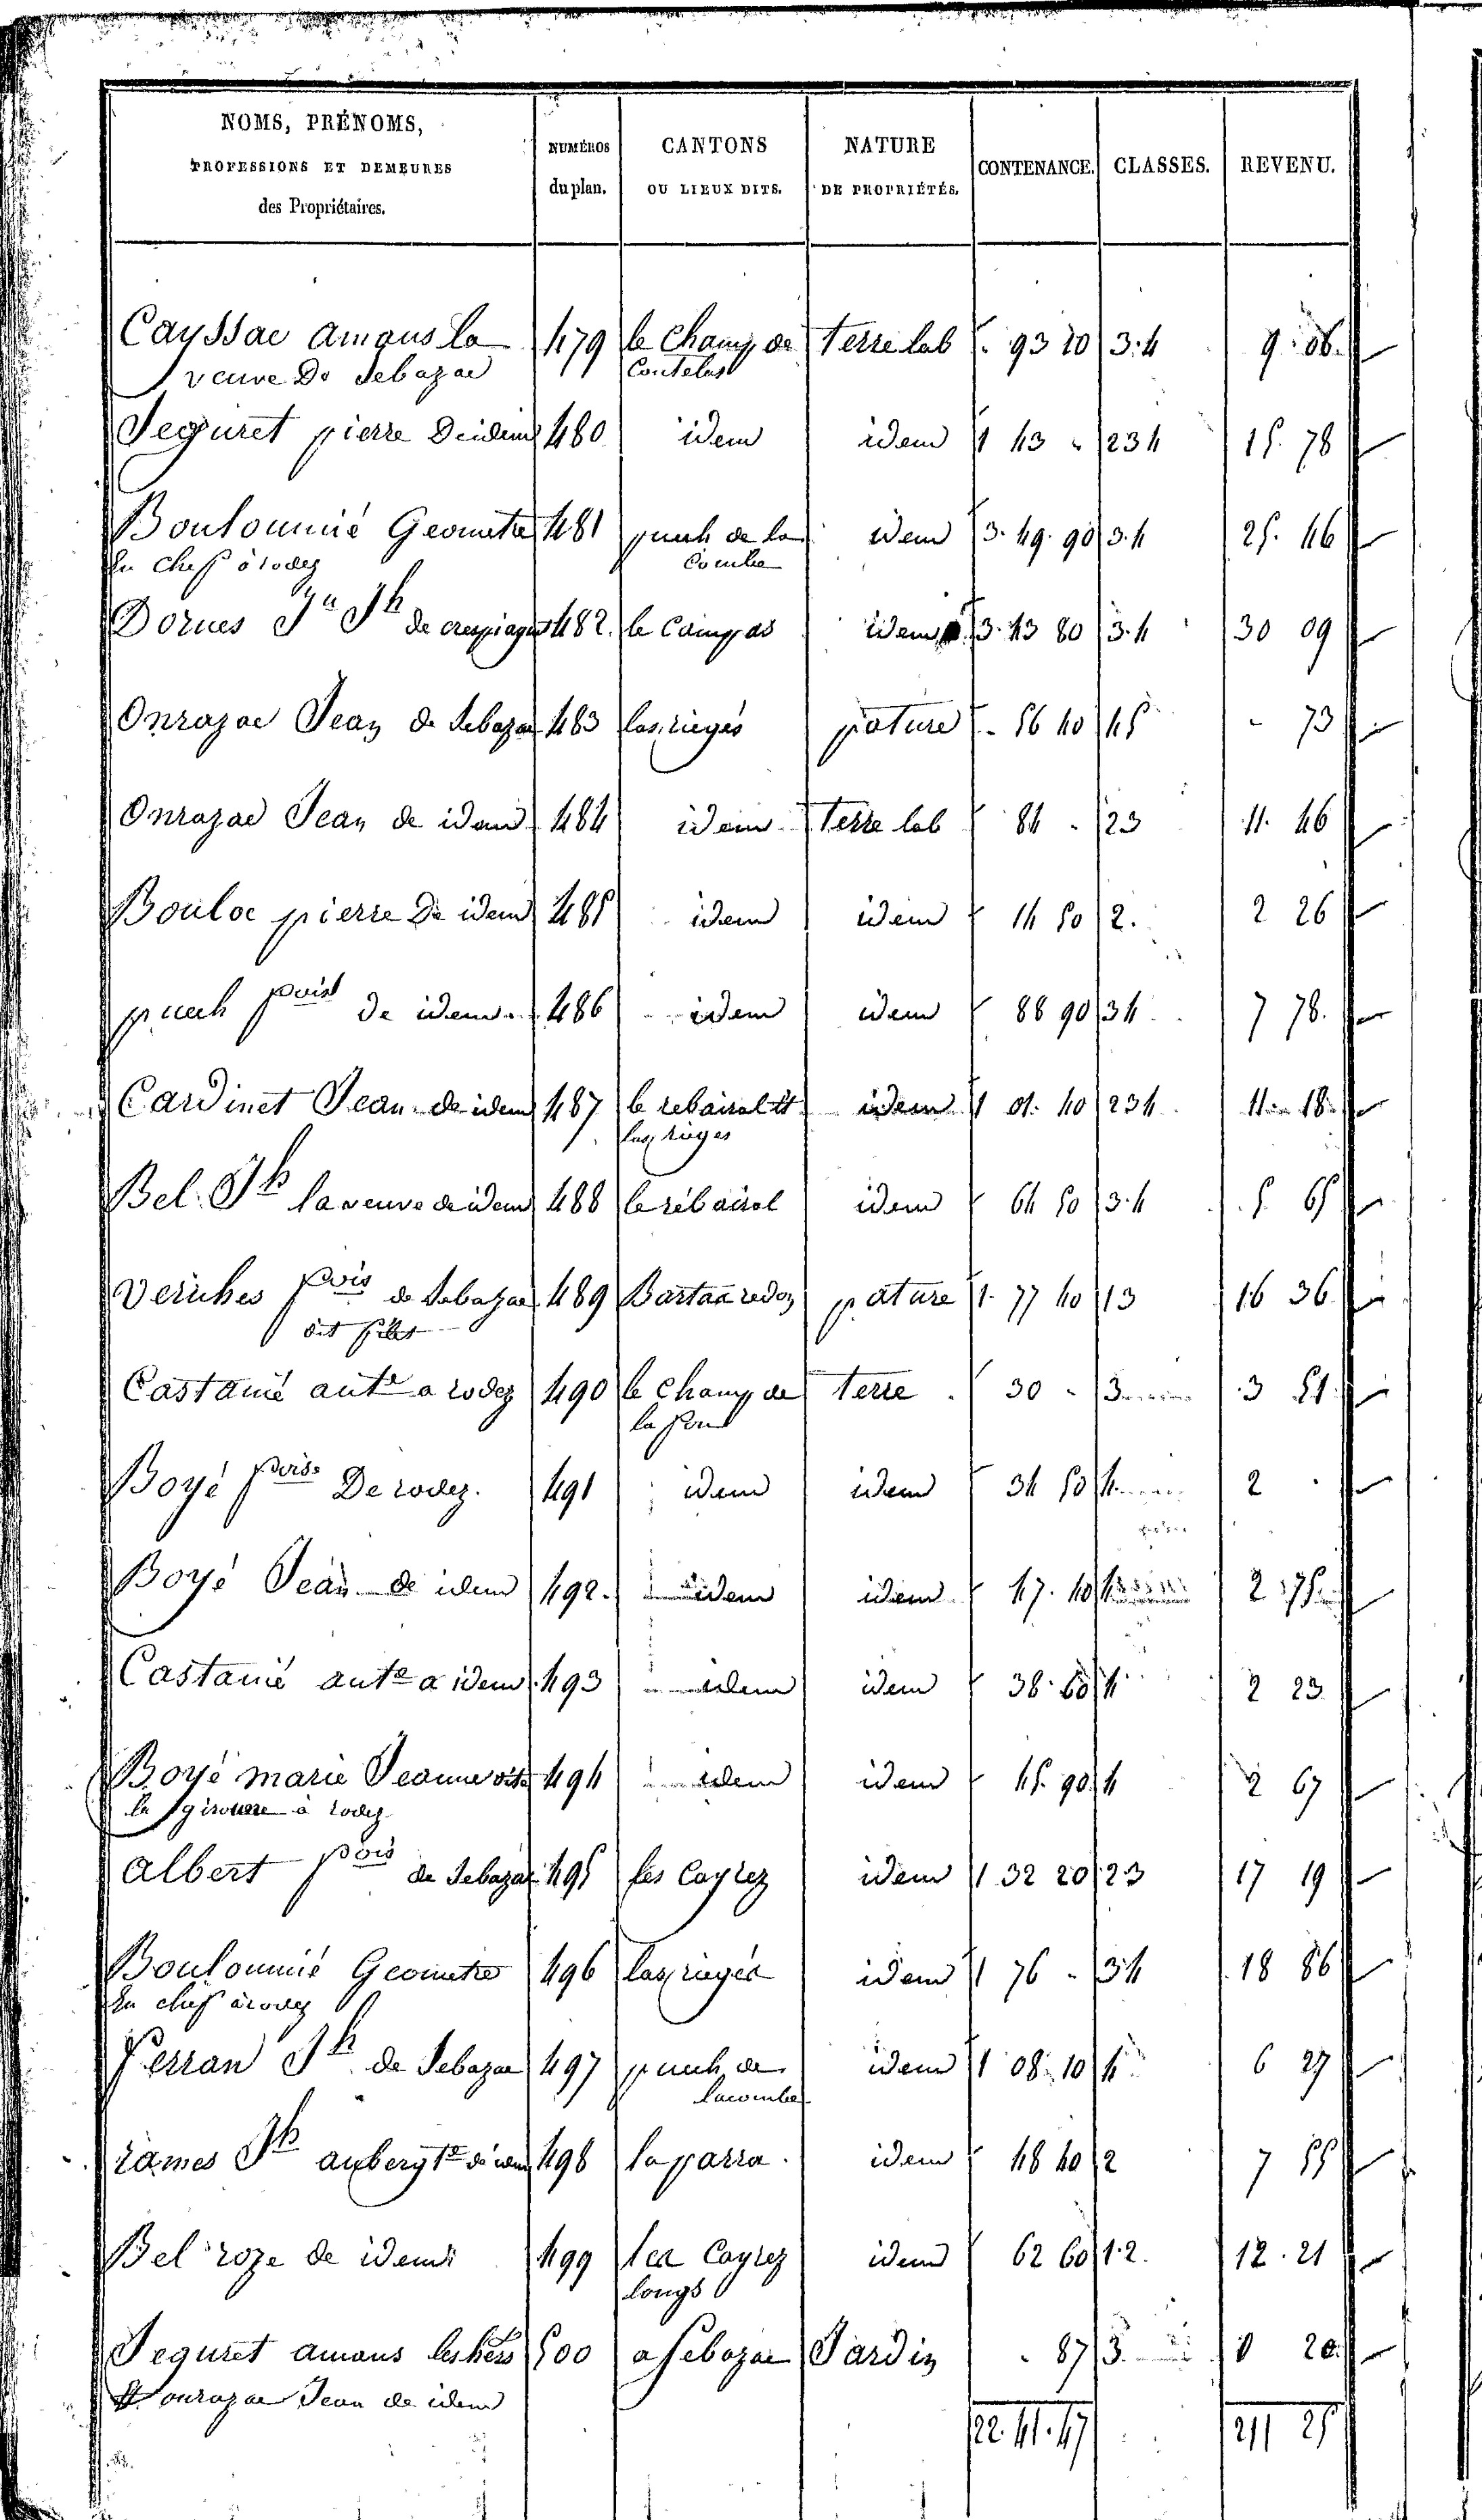 NOMS, PRÉNOMS, PROFESSIONS ET DEMEURES des Propriétaires. NUMÉROS du plan. CANTONS OU LIEUX DITS. NATURE DE PROPRIÉTÉS. CONTENANCE. CLASSES. REVENU.
Cayssac amans la 479 le Champ de terre lab 93 10 3.4 9. 06.
veuve De Sebazac Contelas
Seguret pierre De idem 480 idem idem 1 43 " 234 15. 78
Bouloumié Geometre 481 puech de la idem 3. 49. 90 3.4 25. 46
En chef à rodez Combe
Dornes Jn Jh de crespiaguet 482. le Campas idem 3. 43 80 3.4 30 09
Onrazac Jean de Sebazac 483 las rieges pature - 56 40 45 - 73
Onrazac Jean de idem 484 idem terre lab 84 - 23 11. 46
Bouloc pierre De idem 485 idem idem 14 50 2. 2 26
puech fois de idem 486 idem idem 88 90 34 7 78.
Cardinet Jean de idem 487 le rebairol et idem 1 01. 40 234 11 18
las rieges
Bel. Jh la veuve de idem 488 le rébairol idem 64 50 3.4 5 65
Veruhes fois de Sebazac 489 Bartas redon pature 1. 77 40 13 16 36
dit
Castanié ante a rodez 490 le champ de terre 30 - 3 3 51
la fon
Boyé fois De rodez. 491 idem idem 34 50 4 2
Boyé Jean de idem 492. idem idem 47. 40 4 2 75
Castanié ante a idem 493 idem idem 38. 60 4 2 23
Boyé marie Jeanne dite 494 idem idem 45. 90 4 2 67
la girouere à rodez
albert fois de Sebazac 495 les Cayrez idem 1 32 20 23 17 19
Bouloumié Geometre 496 las rieges idem 1 76 - 34 18 86
En chef à rodez
Ferran Jh de Sebazac 497 puech de idem 1 08. 10 4 6 27
lacombe
rames Jh aubergte de idem 498 la parra. idem 48 40 2 7 55
Bel roze de idem 499 les Cayrez idem 62 60 1.2. 12. 21
longs
Seguret amans les hers 500 a Sebazac Jardin 87 3. 0 20
Et onrazac Jean de idem
22. 41. 47 211 25